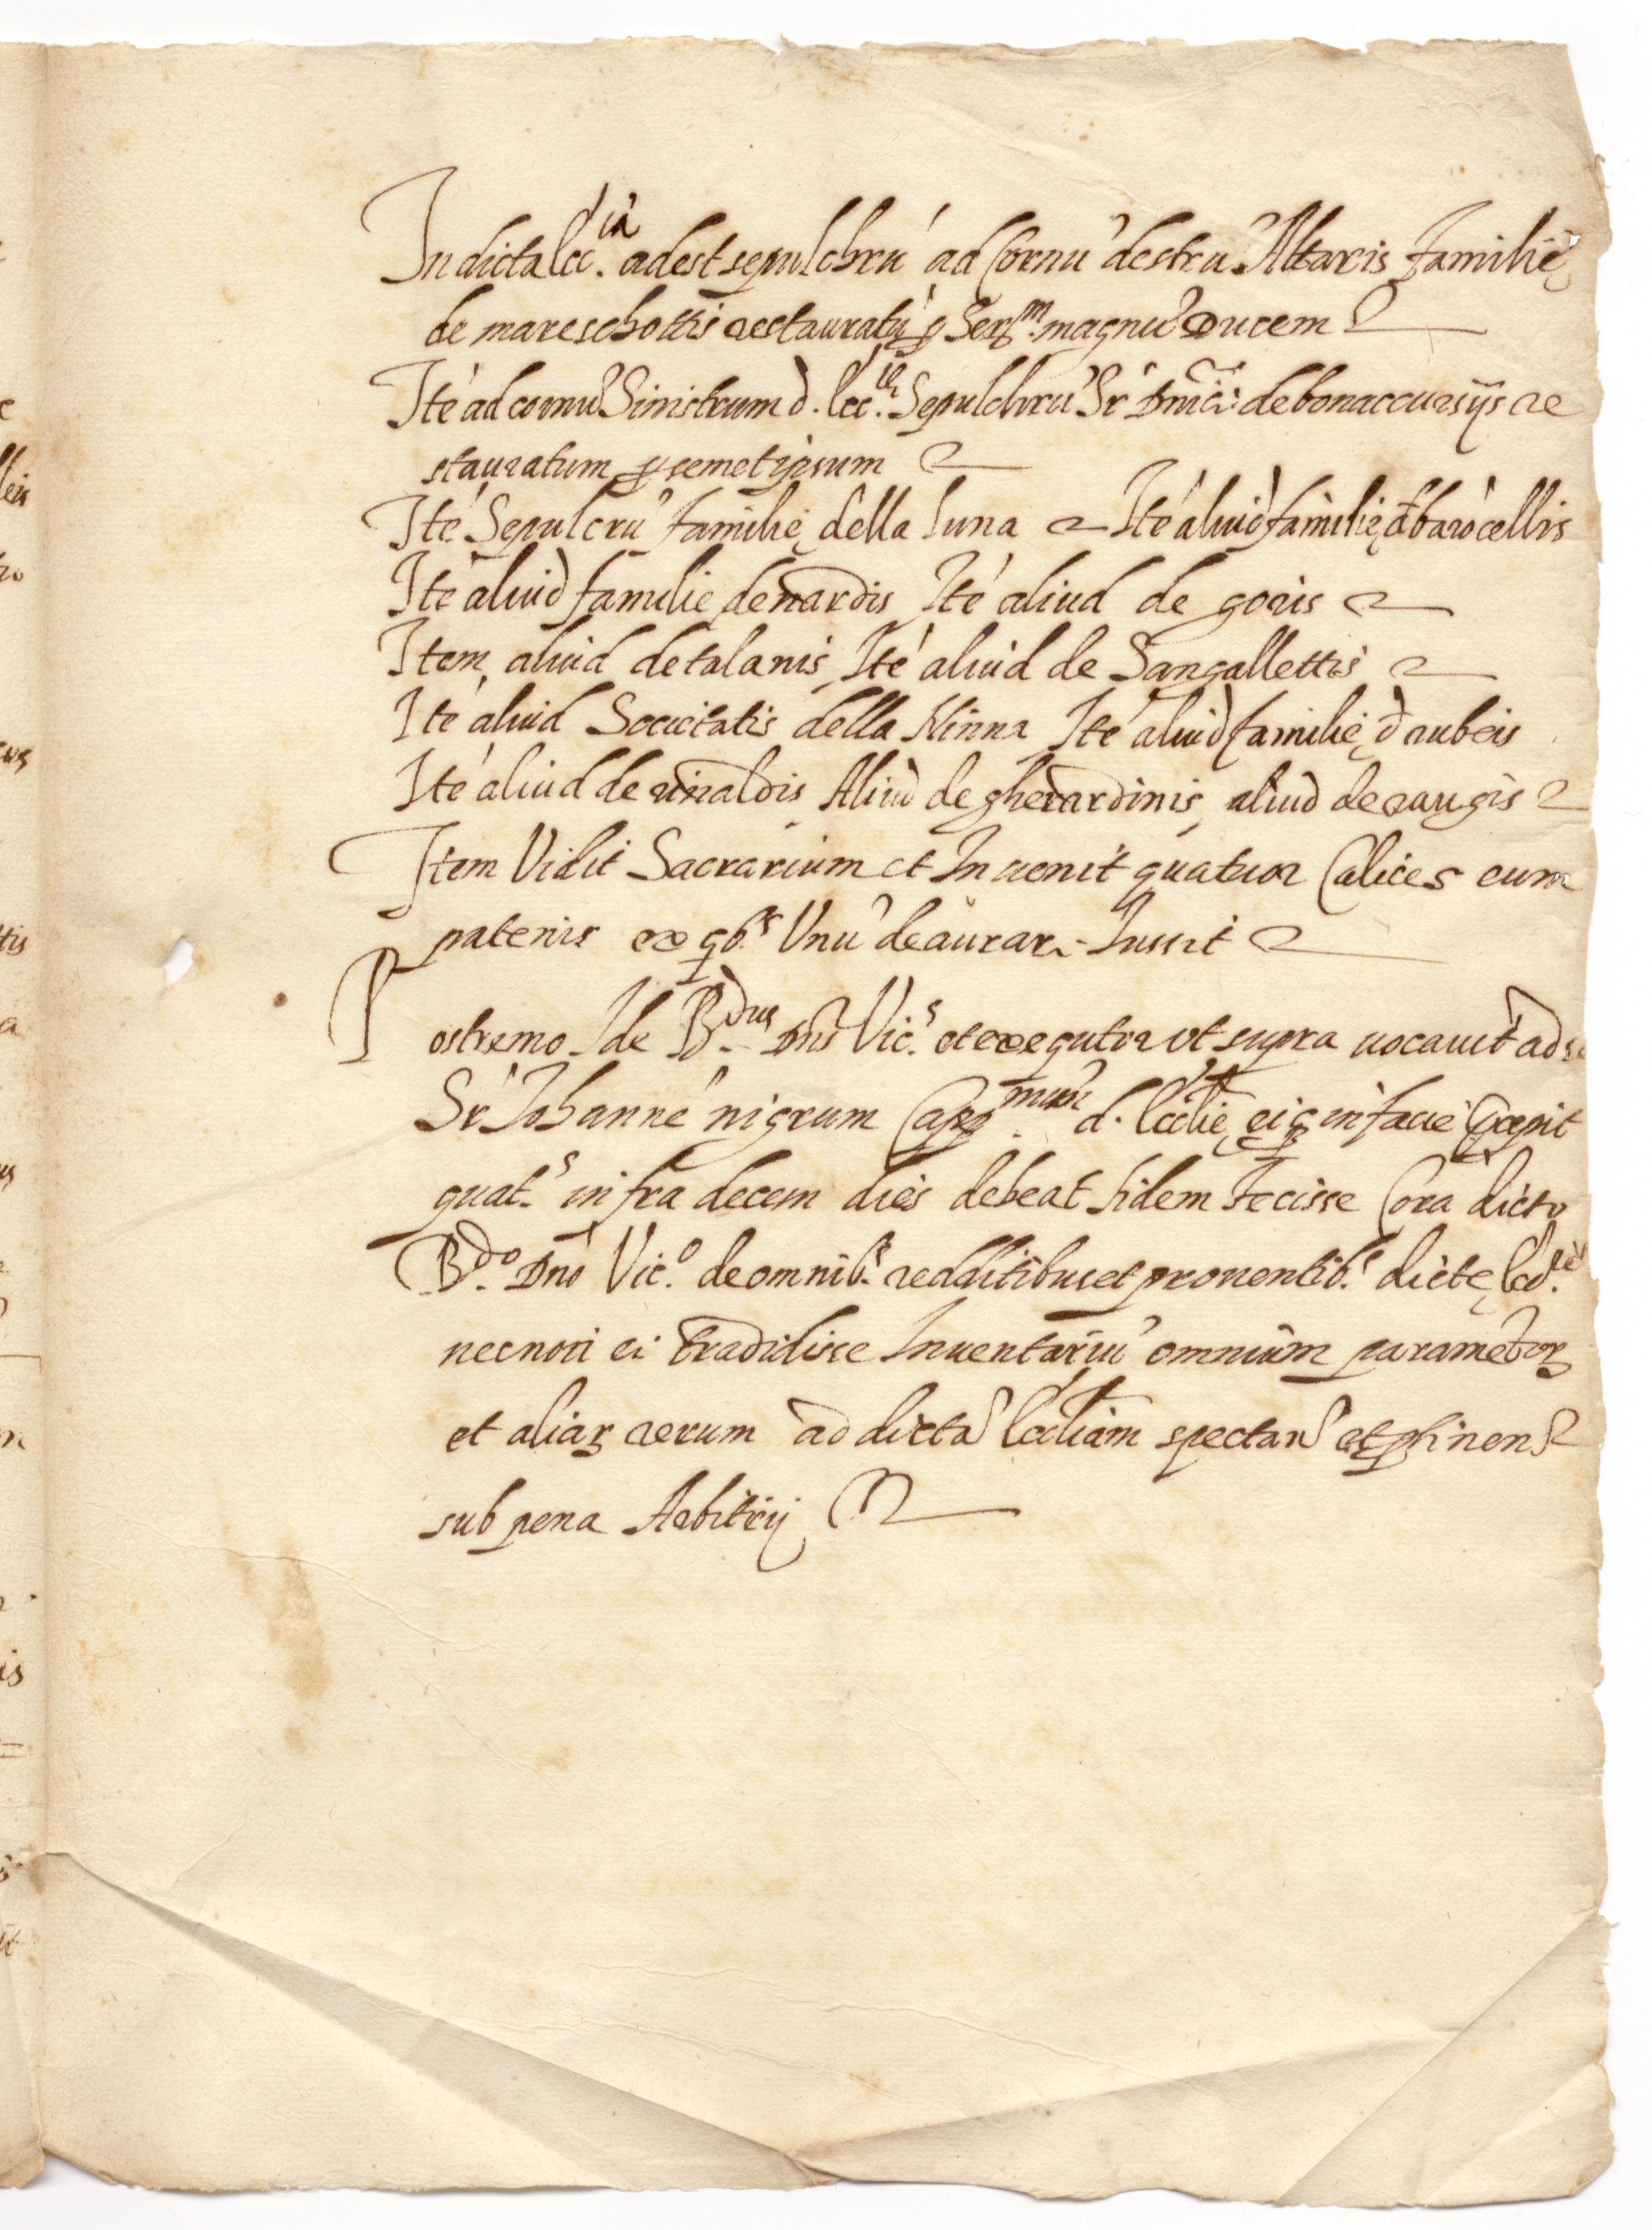 In dicta Ecc.ia adest sepulchrū ad Cornu destrū Altaris familię
de mareschottis restauratū p Ser.m magnū Ducem
Itē ad cornu Sinistrum d. Ecc.ie Sepulchrū Sr Dnici de bonaccursijs re
stauratum p semetipsum
Itē Sepulcrū familię della luna Itē aliud familię d barōcellis
Itē aliud familie de nardis Itē aliud de goris
Item aliud de talanis Itē aliud de Sangallettis
Itē aliud Societatis della Ninna Itē aliud familię d rubeis
Itē aliud de rinaldis Aliud de gherardinis aliud de raugis
Item Vidit Sacrarium et Inuenit quatuor Calices cum
patenis ex qb.s Vnū deaurari Iussit
Postremo Idē R.dus Dns Vic.s et exequtor vt supra uocauit ad se
Sr Iohannē nigrum Capp.num d. Ecclię eiq in faciē pcepit
quat.s infra decem dies debeat fidem fecisse Corā dicto
R.do Dno Vic.o de omnib.s redditibus et prouentib.s dictę Eccl.ie
necnon ei tradidisse Inuentariū omnium paramētor
et aliar rerum ad dictā Eccliam spectan et ptinen
sub pena Arbitrij